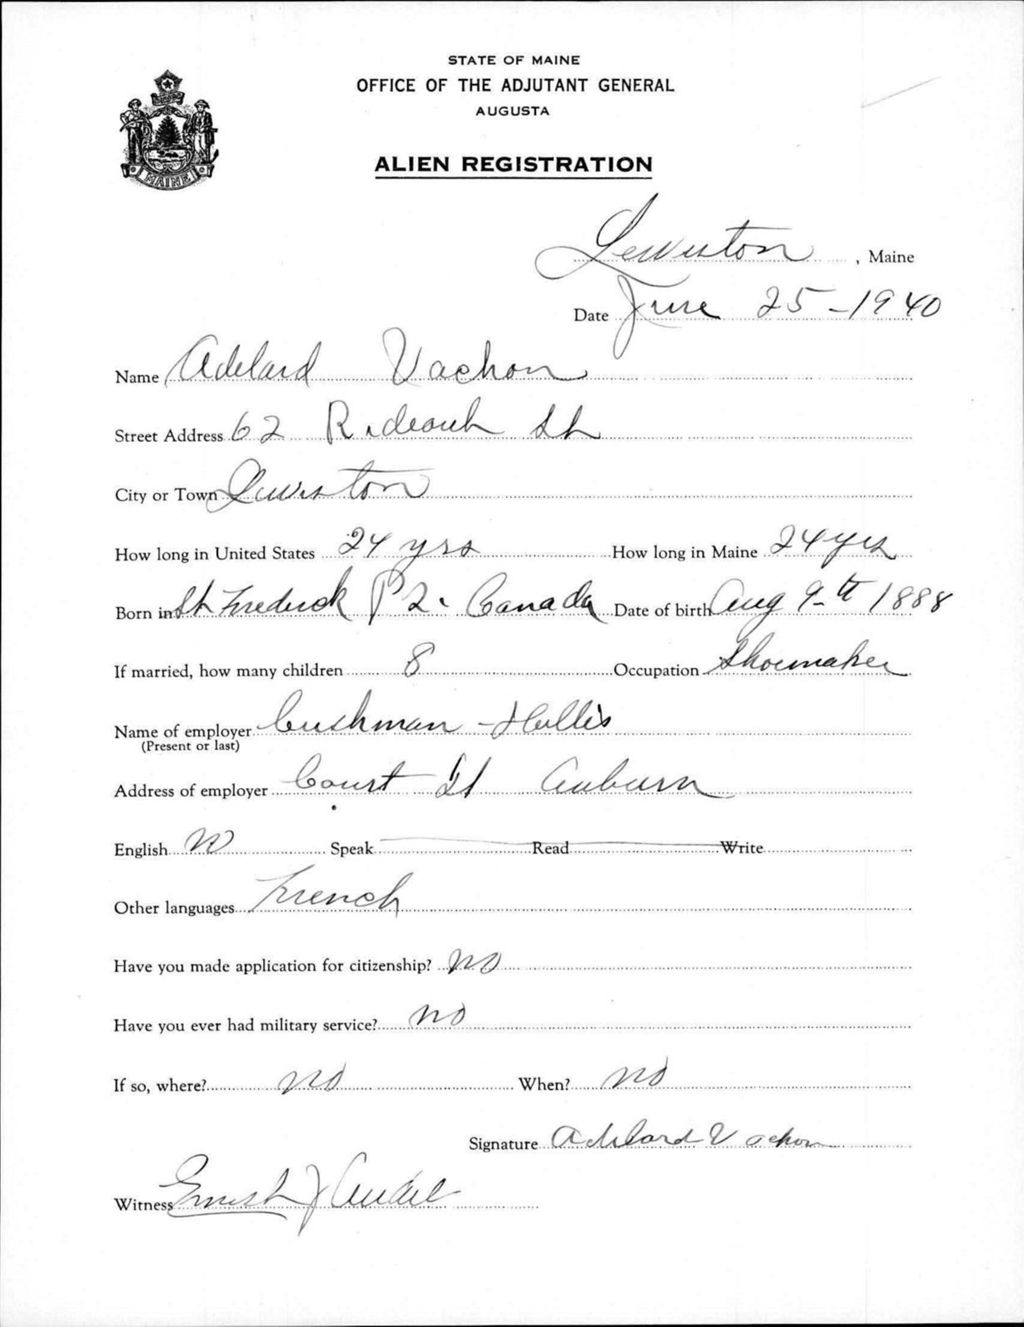 STATE OF MAINE
OFFICE OF THE ADJUTANT GENERAL
AUGUSTA
MAINE
ALIEN REGISTRATION
Lewiston, Maine
Date June 25-1940
Name Adelard Vachon
Street Address 62 Rideout St
City or Town Lewiston
How long in United States 24 yrs How long in Maine 24 yrs
Born in St Frederick P 2. Canada Date of birth Aug 9-th 1888
If married, how many children 8 Occupation Shoemaker
Name of employer Cushman-Hollis
(Present or last)
Address of employer Court St Auburn
English No Speak Read Write
Other languages French
Have you made application for citizenship? No
Have you ever had military service? No
If so, where? no When? no
Signature Adelard Vachon
Witness Ernest J